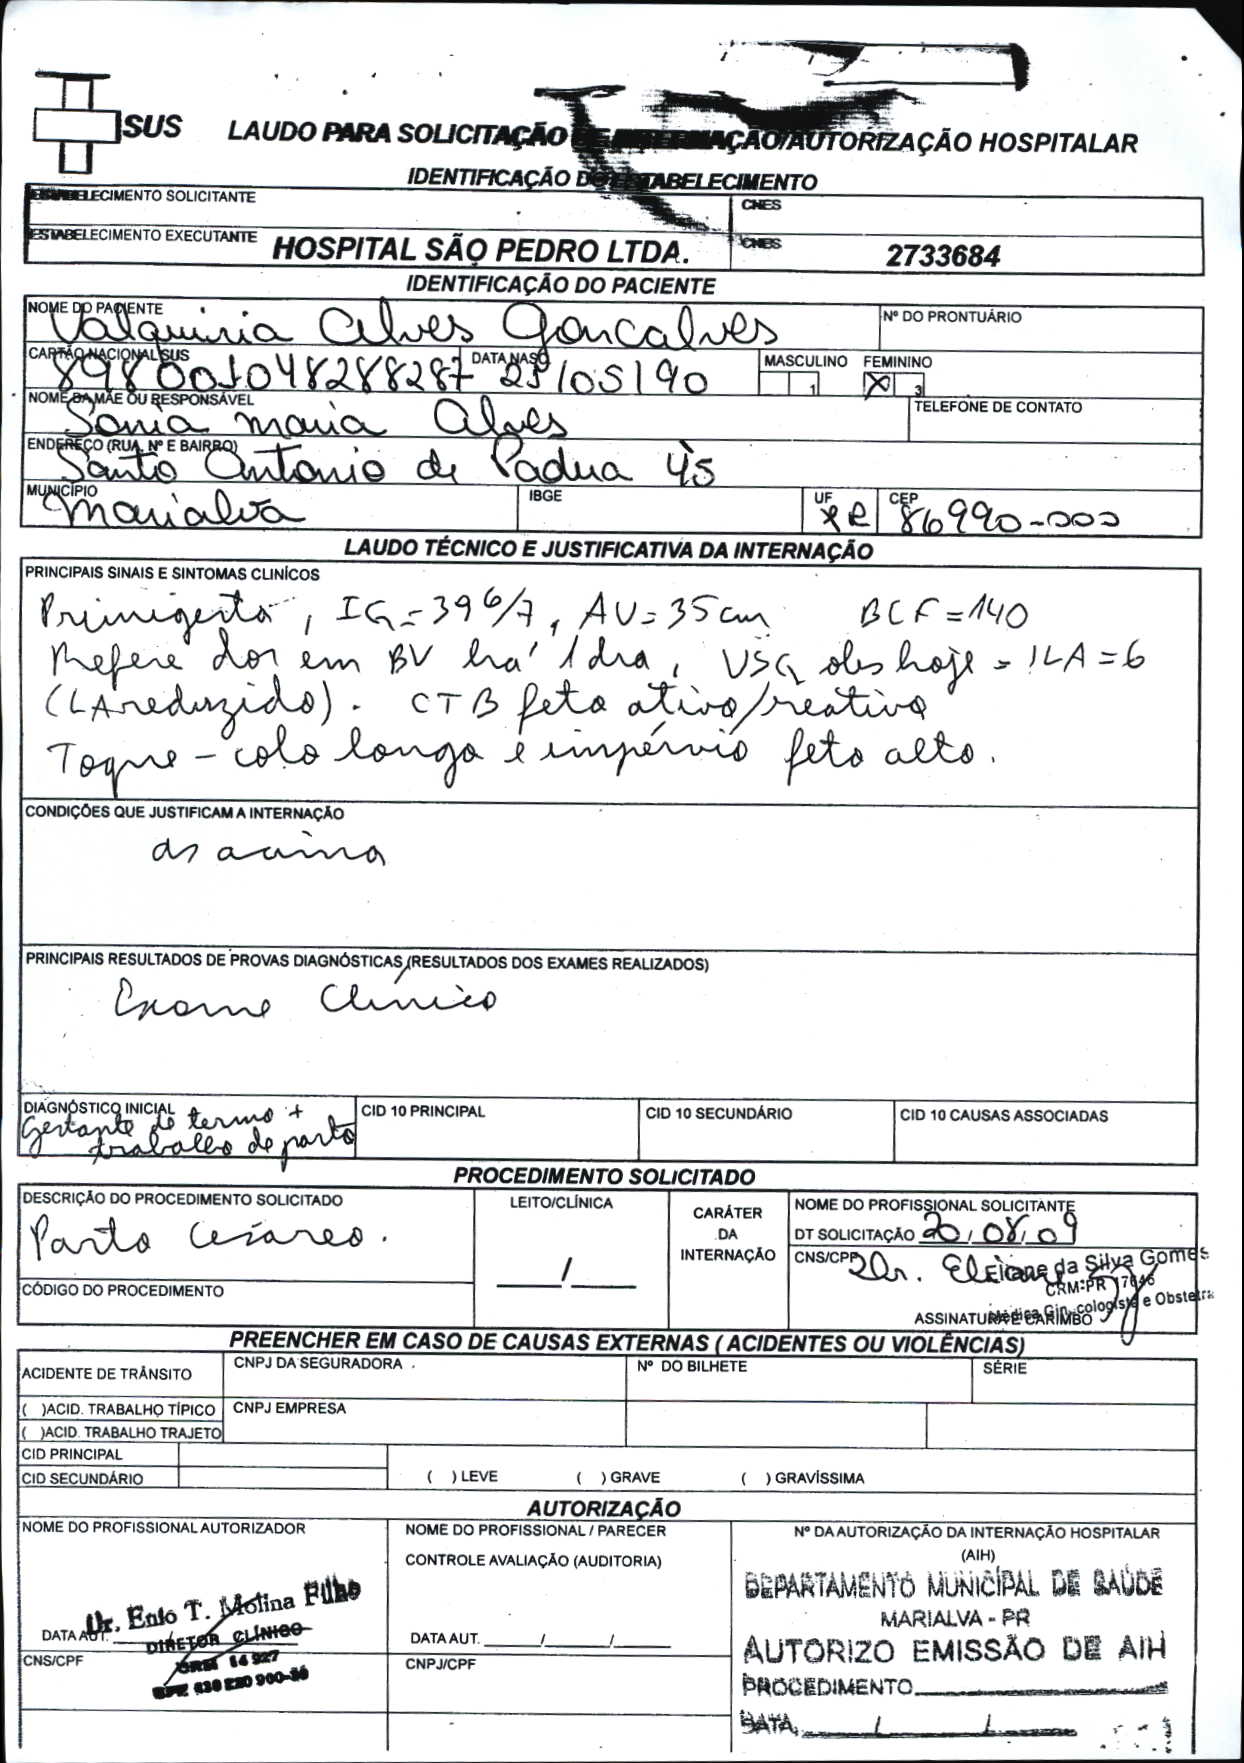 SUS
LAUDO PARA SOLICITAÇÃO DE INTERNAÇÃO/AUTORIZAÇÃO HOSPITALAR
IDENTIFICAÇÃO DO ESTABELECIMENTO
ESTABELECIMENTO SOLICITANTE CNES
ESTABELECIMENTO EXECUTANTE HOSPITAL SÃO PEDRO LTDA. CNES 2733684
IDENTIFICAÇÃO DO PACIENTE
NOME DO PACIENTE Nº DO PRONTUÁRIO
Valquiria Alves Goncalves
CARTÃO NACIONAL SUS DATA NASC MASCULINO FEMININO
898001048288287 /05/90 1 X 3
NOME DA MÃE OU RESPONSÁVEL TELEFONE DE CONTATO
Sonia maria Alves
ENDEREÇO (RUA, Nº E BAIRRO)
Santo Antonio de Padua 45
MUNICÍPIO IBGE UF CEP
Marialva PR 86990-000
LAUDO TÉCNICO E JUSTIFICATIVA DA INTERNAÇÃO
PRINCIPAIS SINAIS E SINTOMAS CLINÍCOS
Primigesta, IG=39 6/7, AU=35cm BCF=140
Refere dor em BV há 1 dia, USG obs hoje = ILA=6
(LA reduzido). CTB feto ativo/reativo
Toque - colo longo e impérvio feto alto.
CONDIÇÕES QUE JUSTIFICAM A INTERNAÇÃO
as acima
PRINCIPAIS RESULTADOS DE PROVAS DIAGNÓSTICAS (RESULTADOS DOS EXAMES REALIZADOS)
Exame Clínico
DIAGNÓSTICO INICIAL CID 10 PRINCIPAL CID 10 SECUNDÁRIO CID 10 CAUSAS ASSOCIADAS
Gestante de termo +
trabalho de parto
PROCEDIMENTO SOLICITADO
DESCRIÇÃO DO PROCEDIMENTO SOLICITADO LEITO/CLÍNICA CARÁTER DA INTERNAÇÃO NOME DO PROFISSIONAL SOLICITANTE
Parto Cesáreo. / DT SOLICITAÇÃO 20/08/09
CNS/CPF Dr. Eliane
Eliane da Silva Gomes
CRM-PR 17646
Médica Ginecologista e Obstetra
CÓDIGO DO PROCEDIMENTO ASSINATURA E CARIMBO
PREENCHER EM CASO DE CAUSAS EXTERNAS ( ACIDENTES OU VIOLÊNCIAS)
ACIDENTE DE TRÂNSITO CNPJ DA SEGURADORA Nº DO BILHETE SÉRIE
( )ACID. TRABALHO TÍPICO CNPJ EMPRESA
( )ACID. TRABALHO TRAJETO
CID PRINCIPAL
CID SECUNDÁRIO ( ) LEVE ( ) GRAVE ( ) GRAVÍSSIMA
AUTORIZAÇÃO
NOME DO PROFISSIONAL AUTORIZADOR NOME DO PROFISSIONAL / PARECER Nº DA AUTORIZAÇÃO DA INTERNAÇÃO HOSPITALAR
CONTROLE AVALIAÇÃO (AUDITORIA) (AIH)
DEPARTAMENTO MUNICÍPAL DE SAÚDE
MARIALVA - PR
Dr. Enio T. Molina Filho
DATA AUT. DIRETOR CLÍNICO DATA AUT. ____/____/____ AUTORIZO EMISSÃO DE AIH
CNS/CPF CRM 14 927 CNPJ/CPF
PROCEDIMENTO
DATA / /